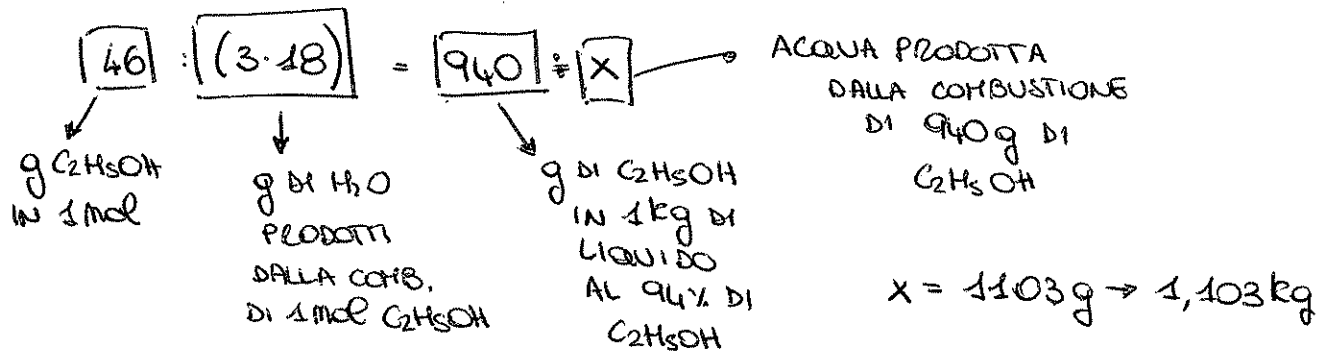 46 : (3·18) = 940 : x
ACQUA PRODOTTA
DALLA COMBUSTIONE
DI 940g DI
C2H5OH
g C2H5OH
IN 1 mol
g DI H2O
PRODOTTI
DALLA COMB.
DI 1 mol C2H5OH
g DI C2H5OH
IN 1kg DI
LIQUIDO
AL 94% DI
C2H5OH
x = 1103g → 1,103kg